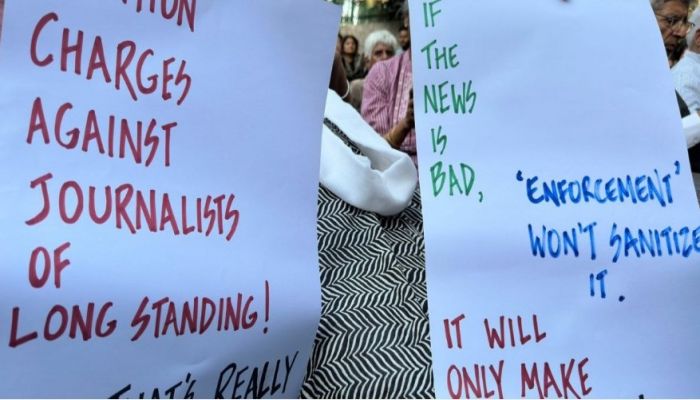 CHARGES
AGAINST
JOURNALISTS
OF
LONG STANDING!
THAT'S REALLY
IF
THE
NEWS
IS
BAD,
'ENFORCEMENT'
WON'T SANITIZE
IT.
IT WILL
ONLY MAKE